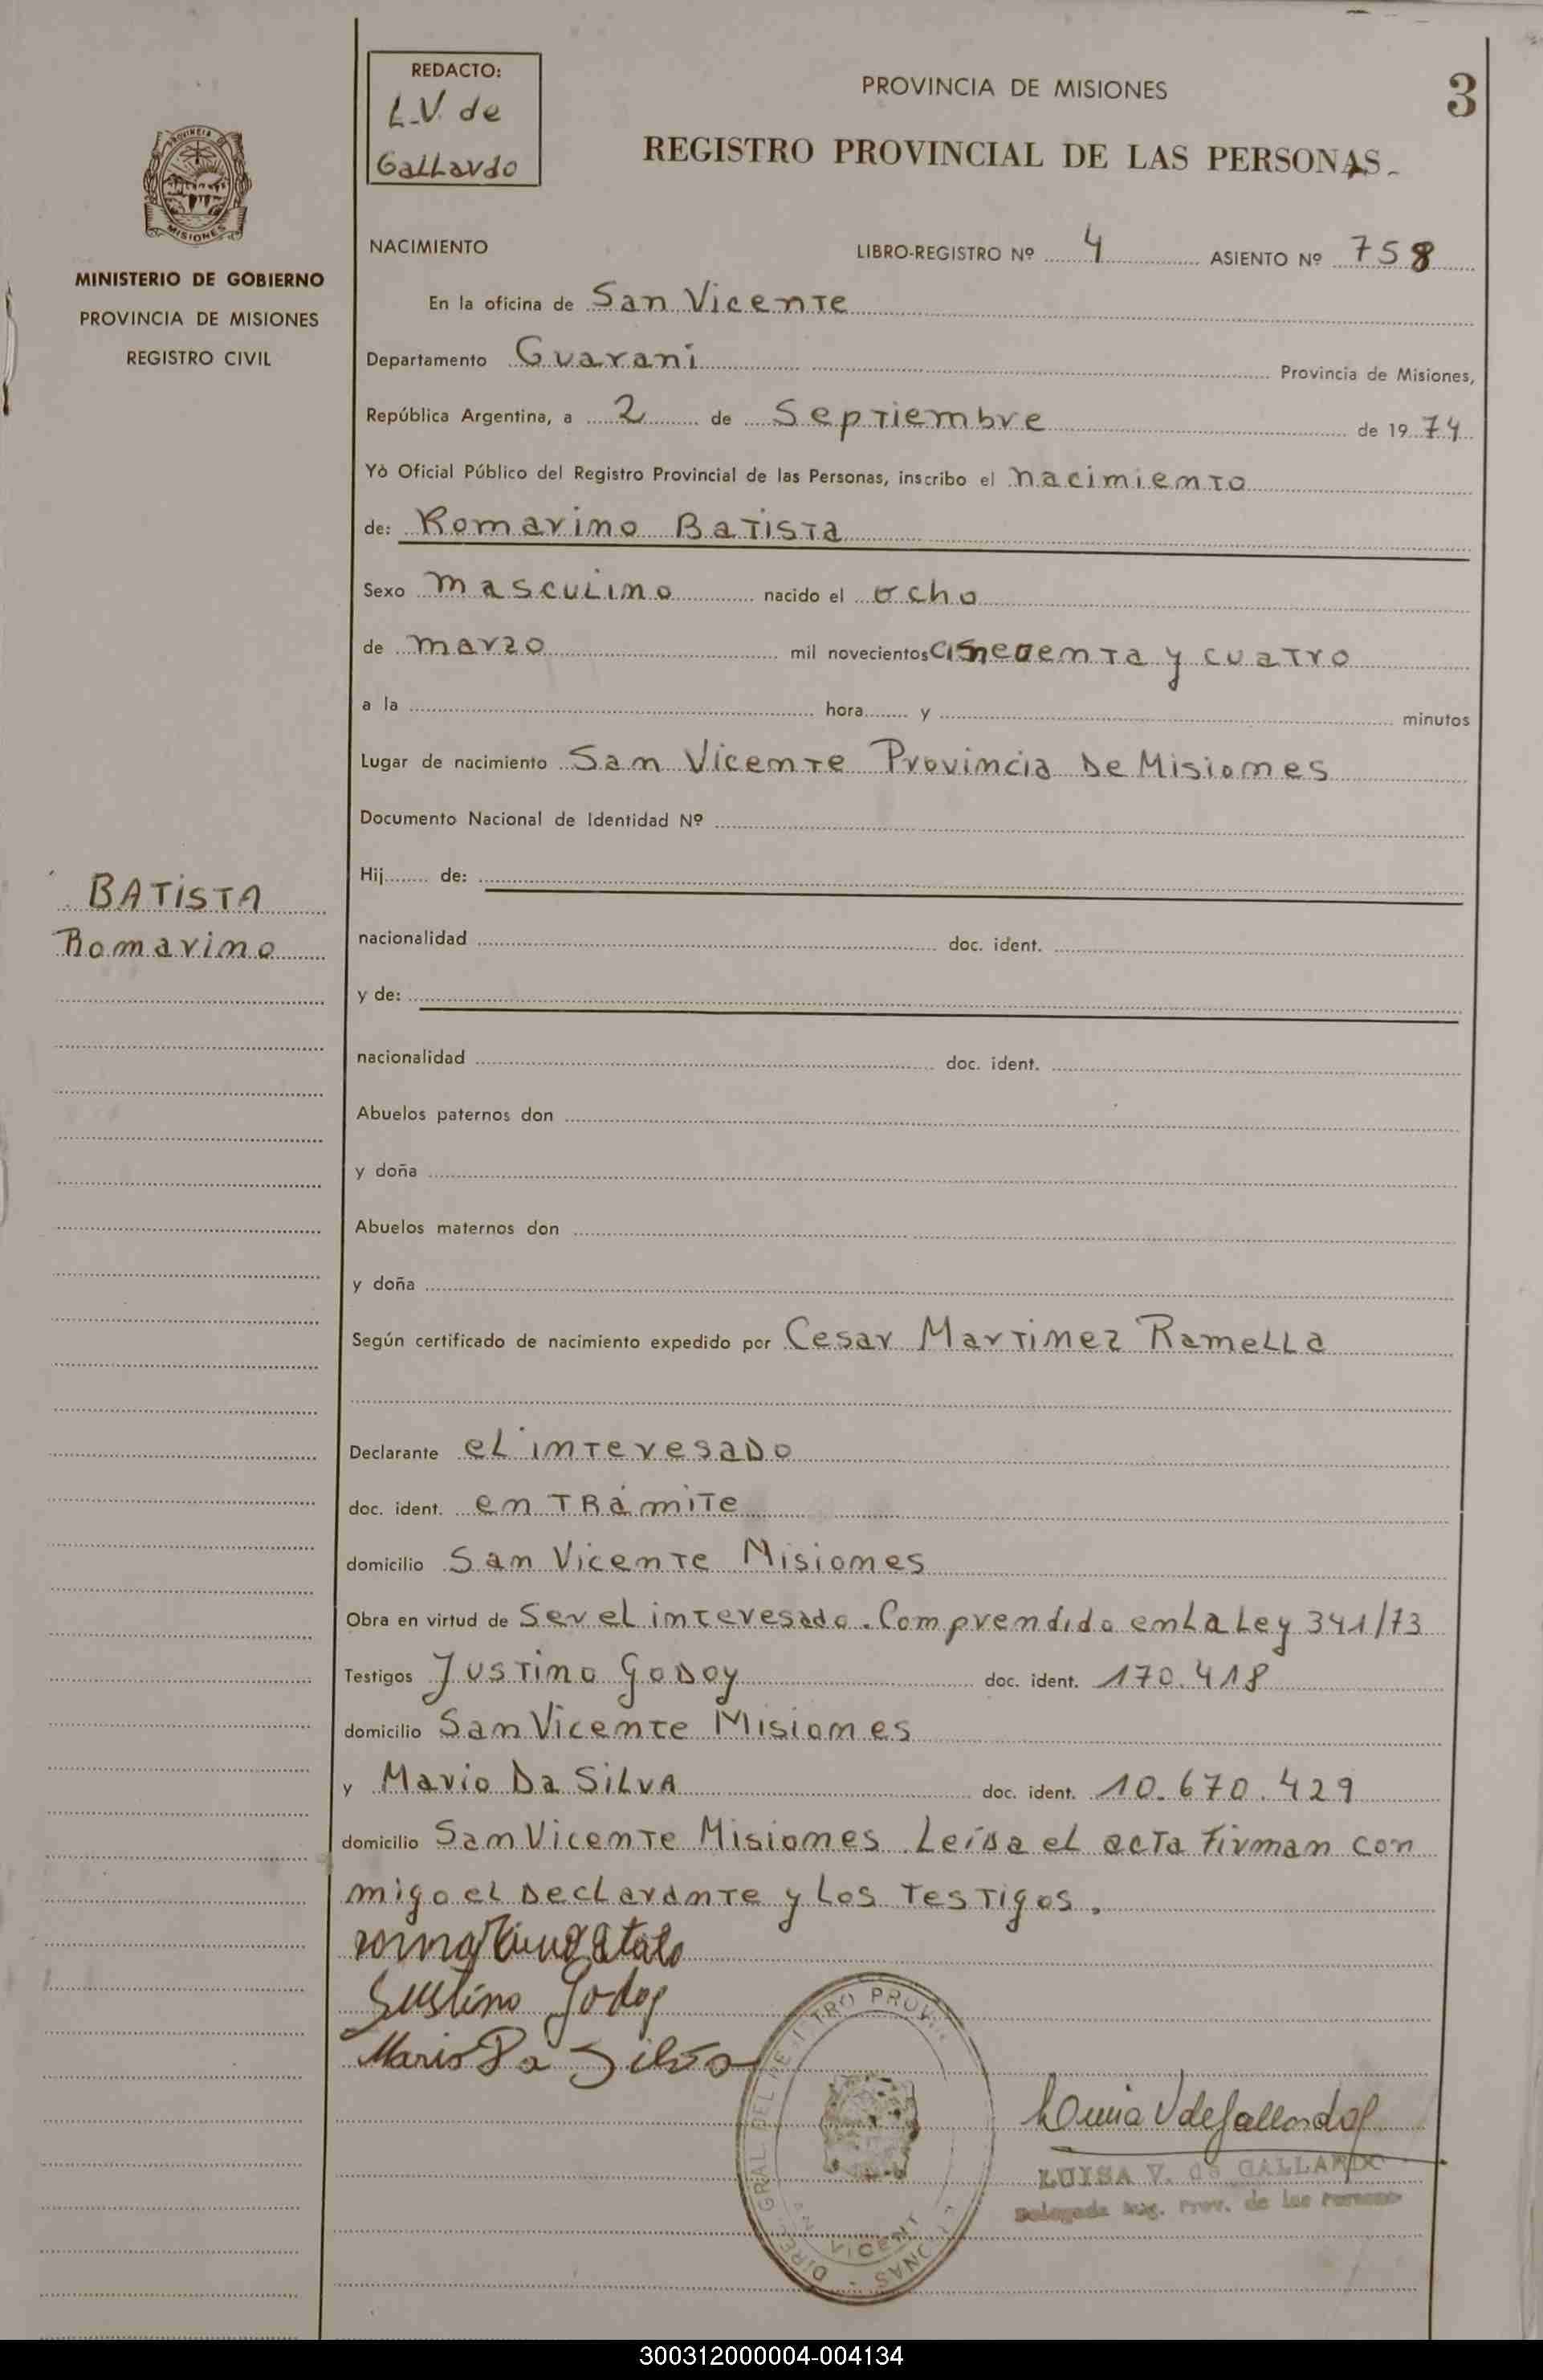 REDACTO:
L.V. de
Gallardo
PROVINCIA DE MISIONES
3
REGISTRO PROVINCIAL DE LAS PERSONAS
MISIONES
MINISTERIO DE GOBIERNO
PROVINCIA DE MISIONES
REGISTRO CIVIL
NACIMIENTO LIBRO-REGISTRO Nº 4 ASIENTO Nº 758
En la oficina de San Vicente
Departamento Guarani Provincia de Misiones,
República Argentina, a 2 de Septiembre de 1974
Yo Oficial Público del Registro Provincial de las Personas, inscribo el nacimiento
de: Romarino Batista
Sexo masculino nacido el ocho
de marzo mil novecientos cincuenta y cuatro
a la hora y minutos
Lugar de nacimiento San Vicente Provincia De Misiones
Documento Nacional de Identidad Nº
Hij de:
BATISTA
Romarino
nacionalidad doc. ident.
y de:
nacionalidad doc. ident.
Abuelos paternos don
y doña
Abuelos maternos don
y doña
Según certificado de nacimiento expedido por Cesar Martinez Ramella
Declarante el interesado
doc. ident. en trámite
domicilio San Vicente Misiones
Obra en virtud de Ser el interesado. Comprendido en La Ley 341/73
Testigos Justino Godoy doc. ident. 170.418
domicilio San Vicente Misiones
y Mario Da Silva doc. ident. 10.670.429
domicilio San Vicente Misiones. Leída el acta firman con
migo el Declarante y Los Testigos.
Justino Godoy
Mario Da Silva
LUISA V. de GALLARDO
300312000004-004134